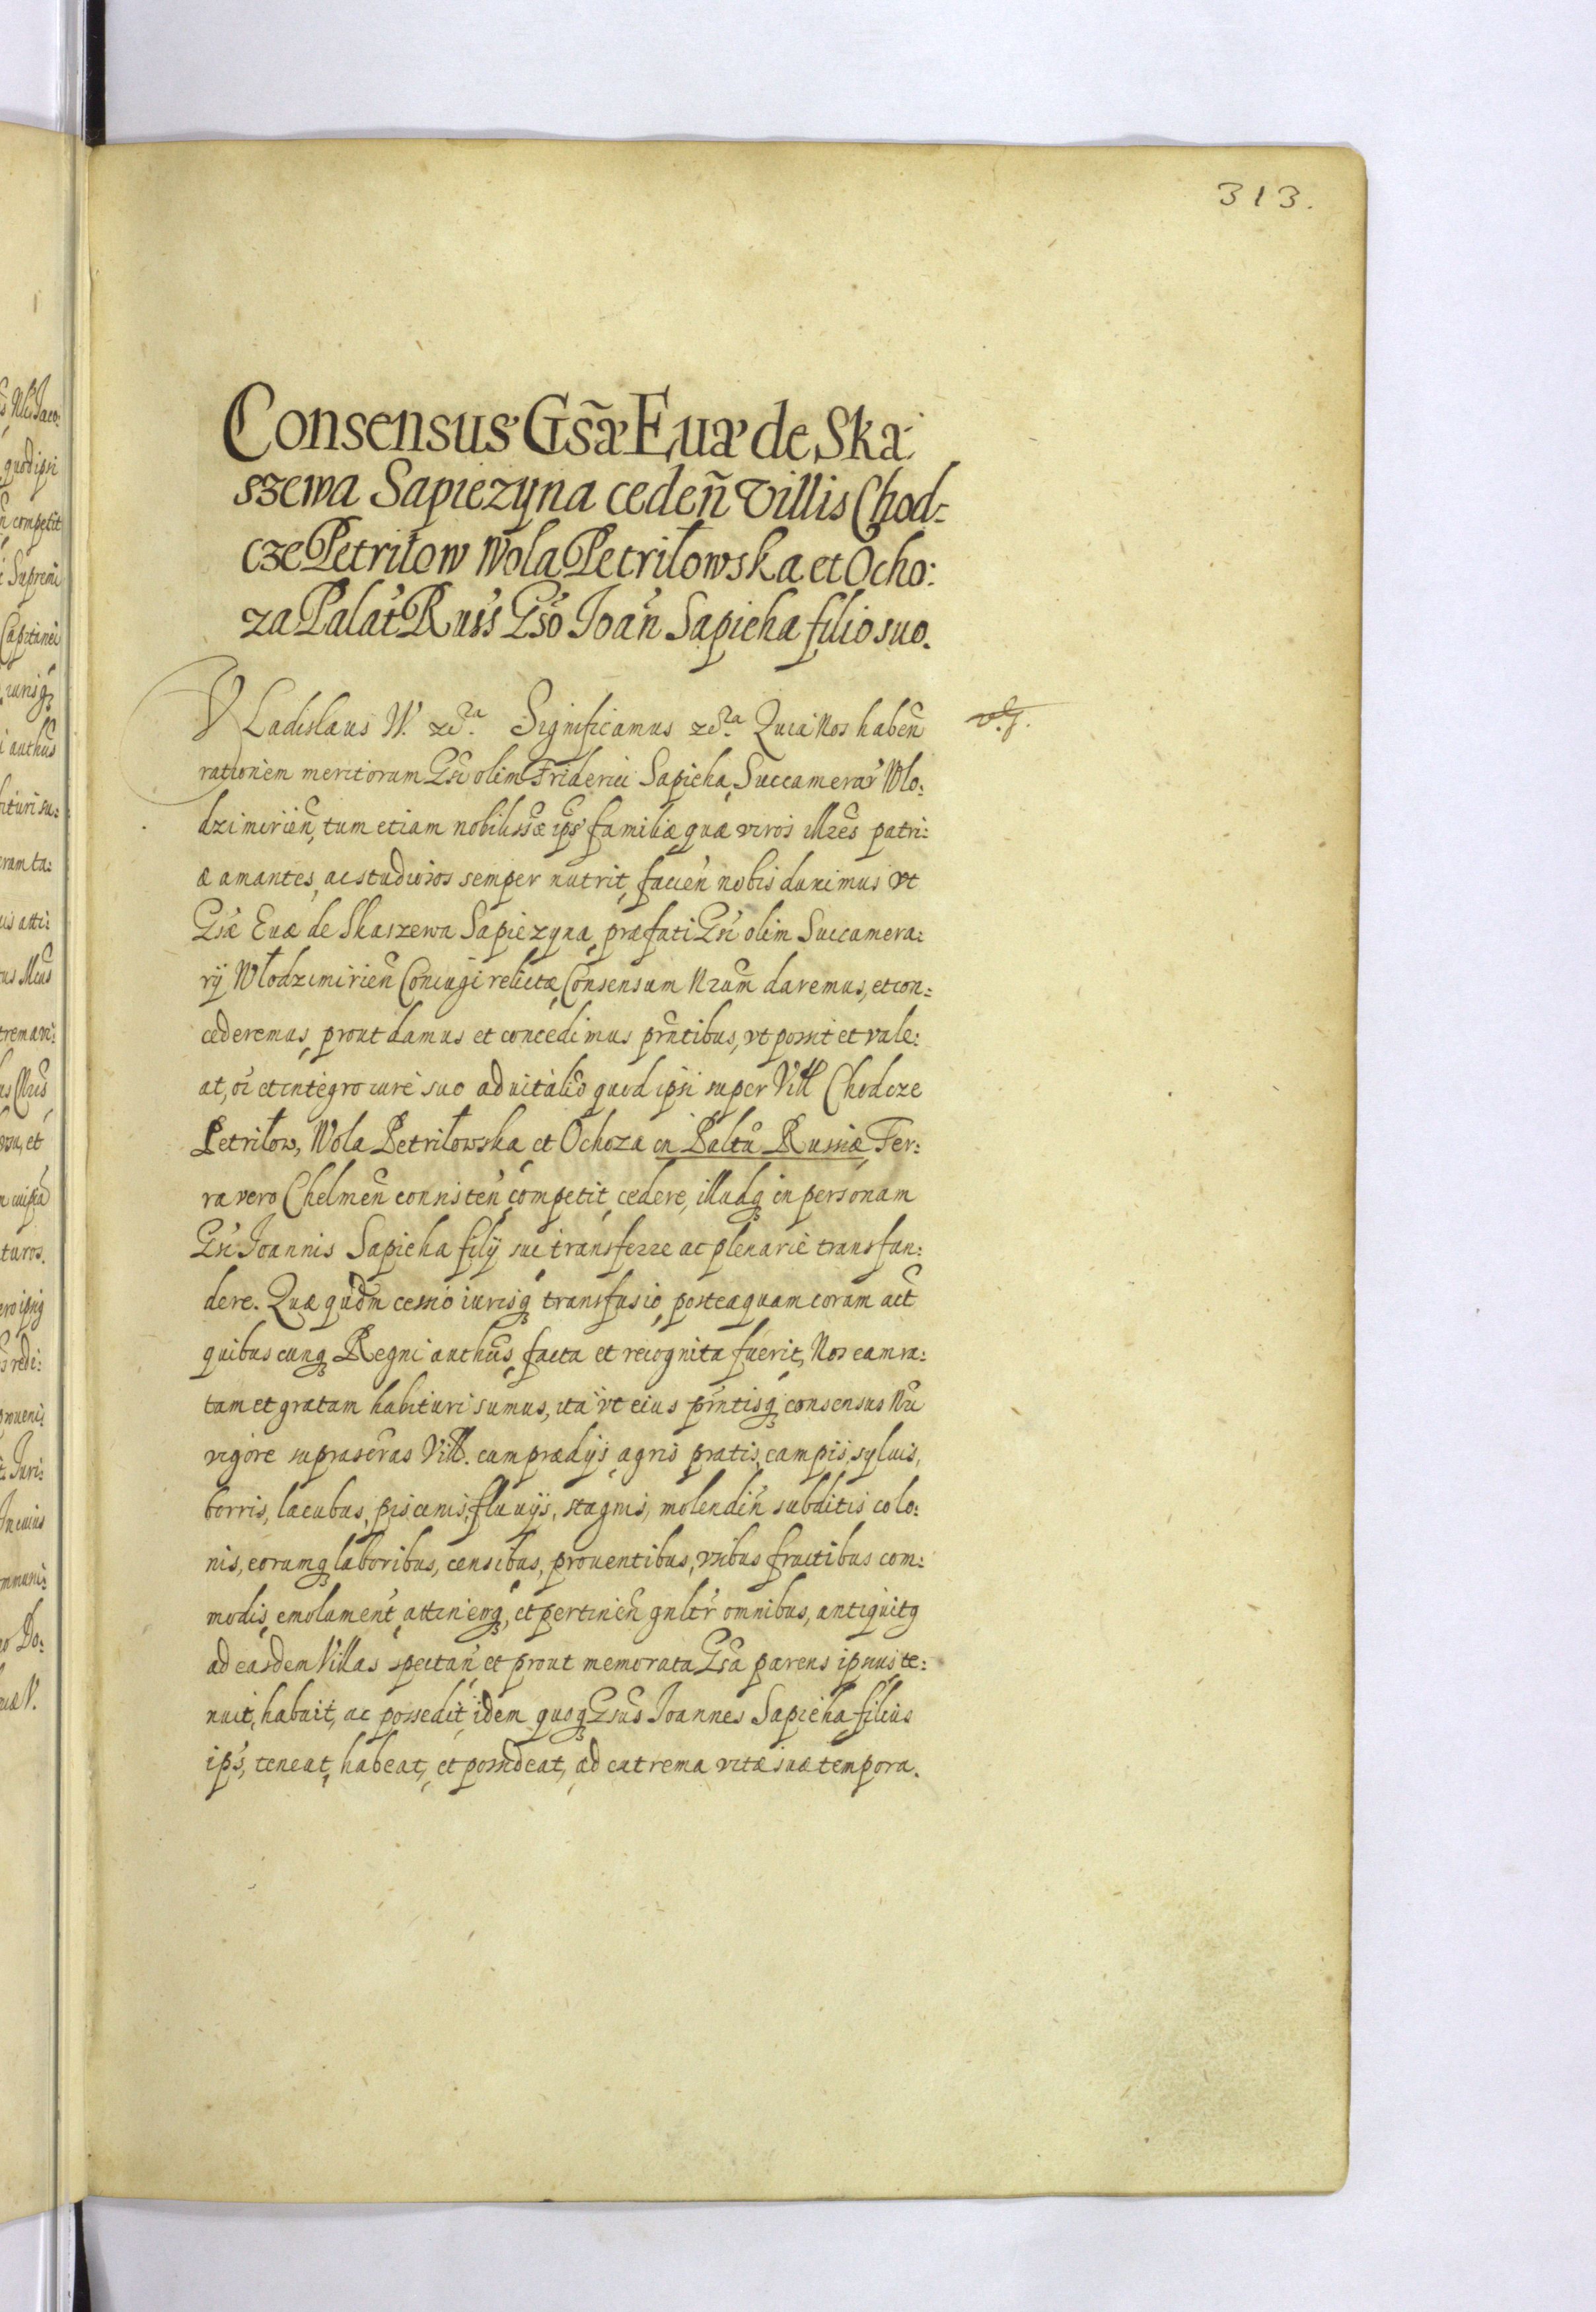 313.
Consensus Gsæ Euæ de Ska:
szewa Sapiezyna cedeñ Villis Chod:
cze Petriłow Wola Petriłowska et Ocho:
za Palat Russ Gso Ioañ Sapieha filio suo.
VLadislaus IV. &ca. Significamus &ca. Quia Nos habeñ
rationem meritorum Gsi olim Friderici Sapieha, Succamerar Wlo:
dzimirieñ, tum etiam nobilissæ ips familiæ quæ viros illres patri:
æ amantes, ac studiosos semper nutrit, facień nobis duximus vt
Gsæ Euæ de Skaszewa Sapiezyna, præfati Gsi olim Succamera:
rij Włodzimirieñ Coniugi relictæ, Consensum Nrum daremus, et con:
cederemus, prout damus et concedimus pñtibus, vt possit et vale:
at, oi et integro iure suo aduitalio quod ipsi super Vill Chodcze
Petriłow, Wola Petriłowska et Ochoza in Paltu Russiæ Ter:
ra vero Chelmeñ consisteñ competit, cedere, illudq in personam
Gsi Joannis Sapieha filij sui transferre ac plenarie transfun:
dere. Quæ quidm cessio iurisq transfusio, posteaquam coram act
quibuscunq Regni authcis, facta et recognita fuerit, Nos eam ra:
tam et gratam habituri sumus, ita vt eius pñtisq consensus Nri
vigore suprascras Vill. cum prædijs, agris, pratis, campis, syluis,
borris, lacubus, piscinis, fluuijs, stagnis, molendiñ subditis colo:
nis, eorumq laboribus, censibus, prouentibus, vsibus fructibus com:
modis, emolament, attineñq, et pertineñ gnltr omnibus, antiquitq
ad easdem Villas spectañ et prout memorata Gsa parens ipsius te:
nuit, habuit, ac possedit, idem quoq Gsus Joannes Sapieha filius
ips, teneat, habeat, et possideat, ad extrema vitæ suæ tempora.